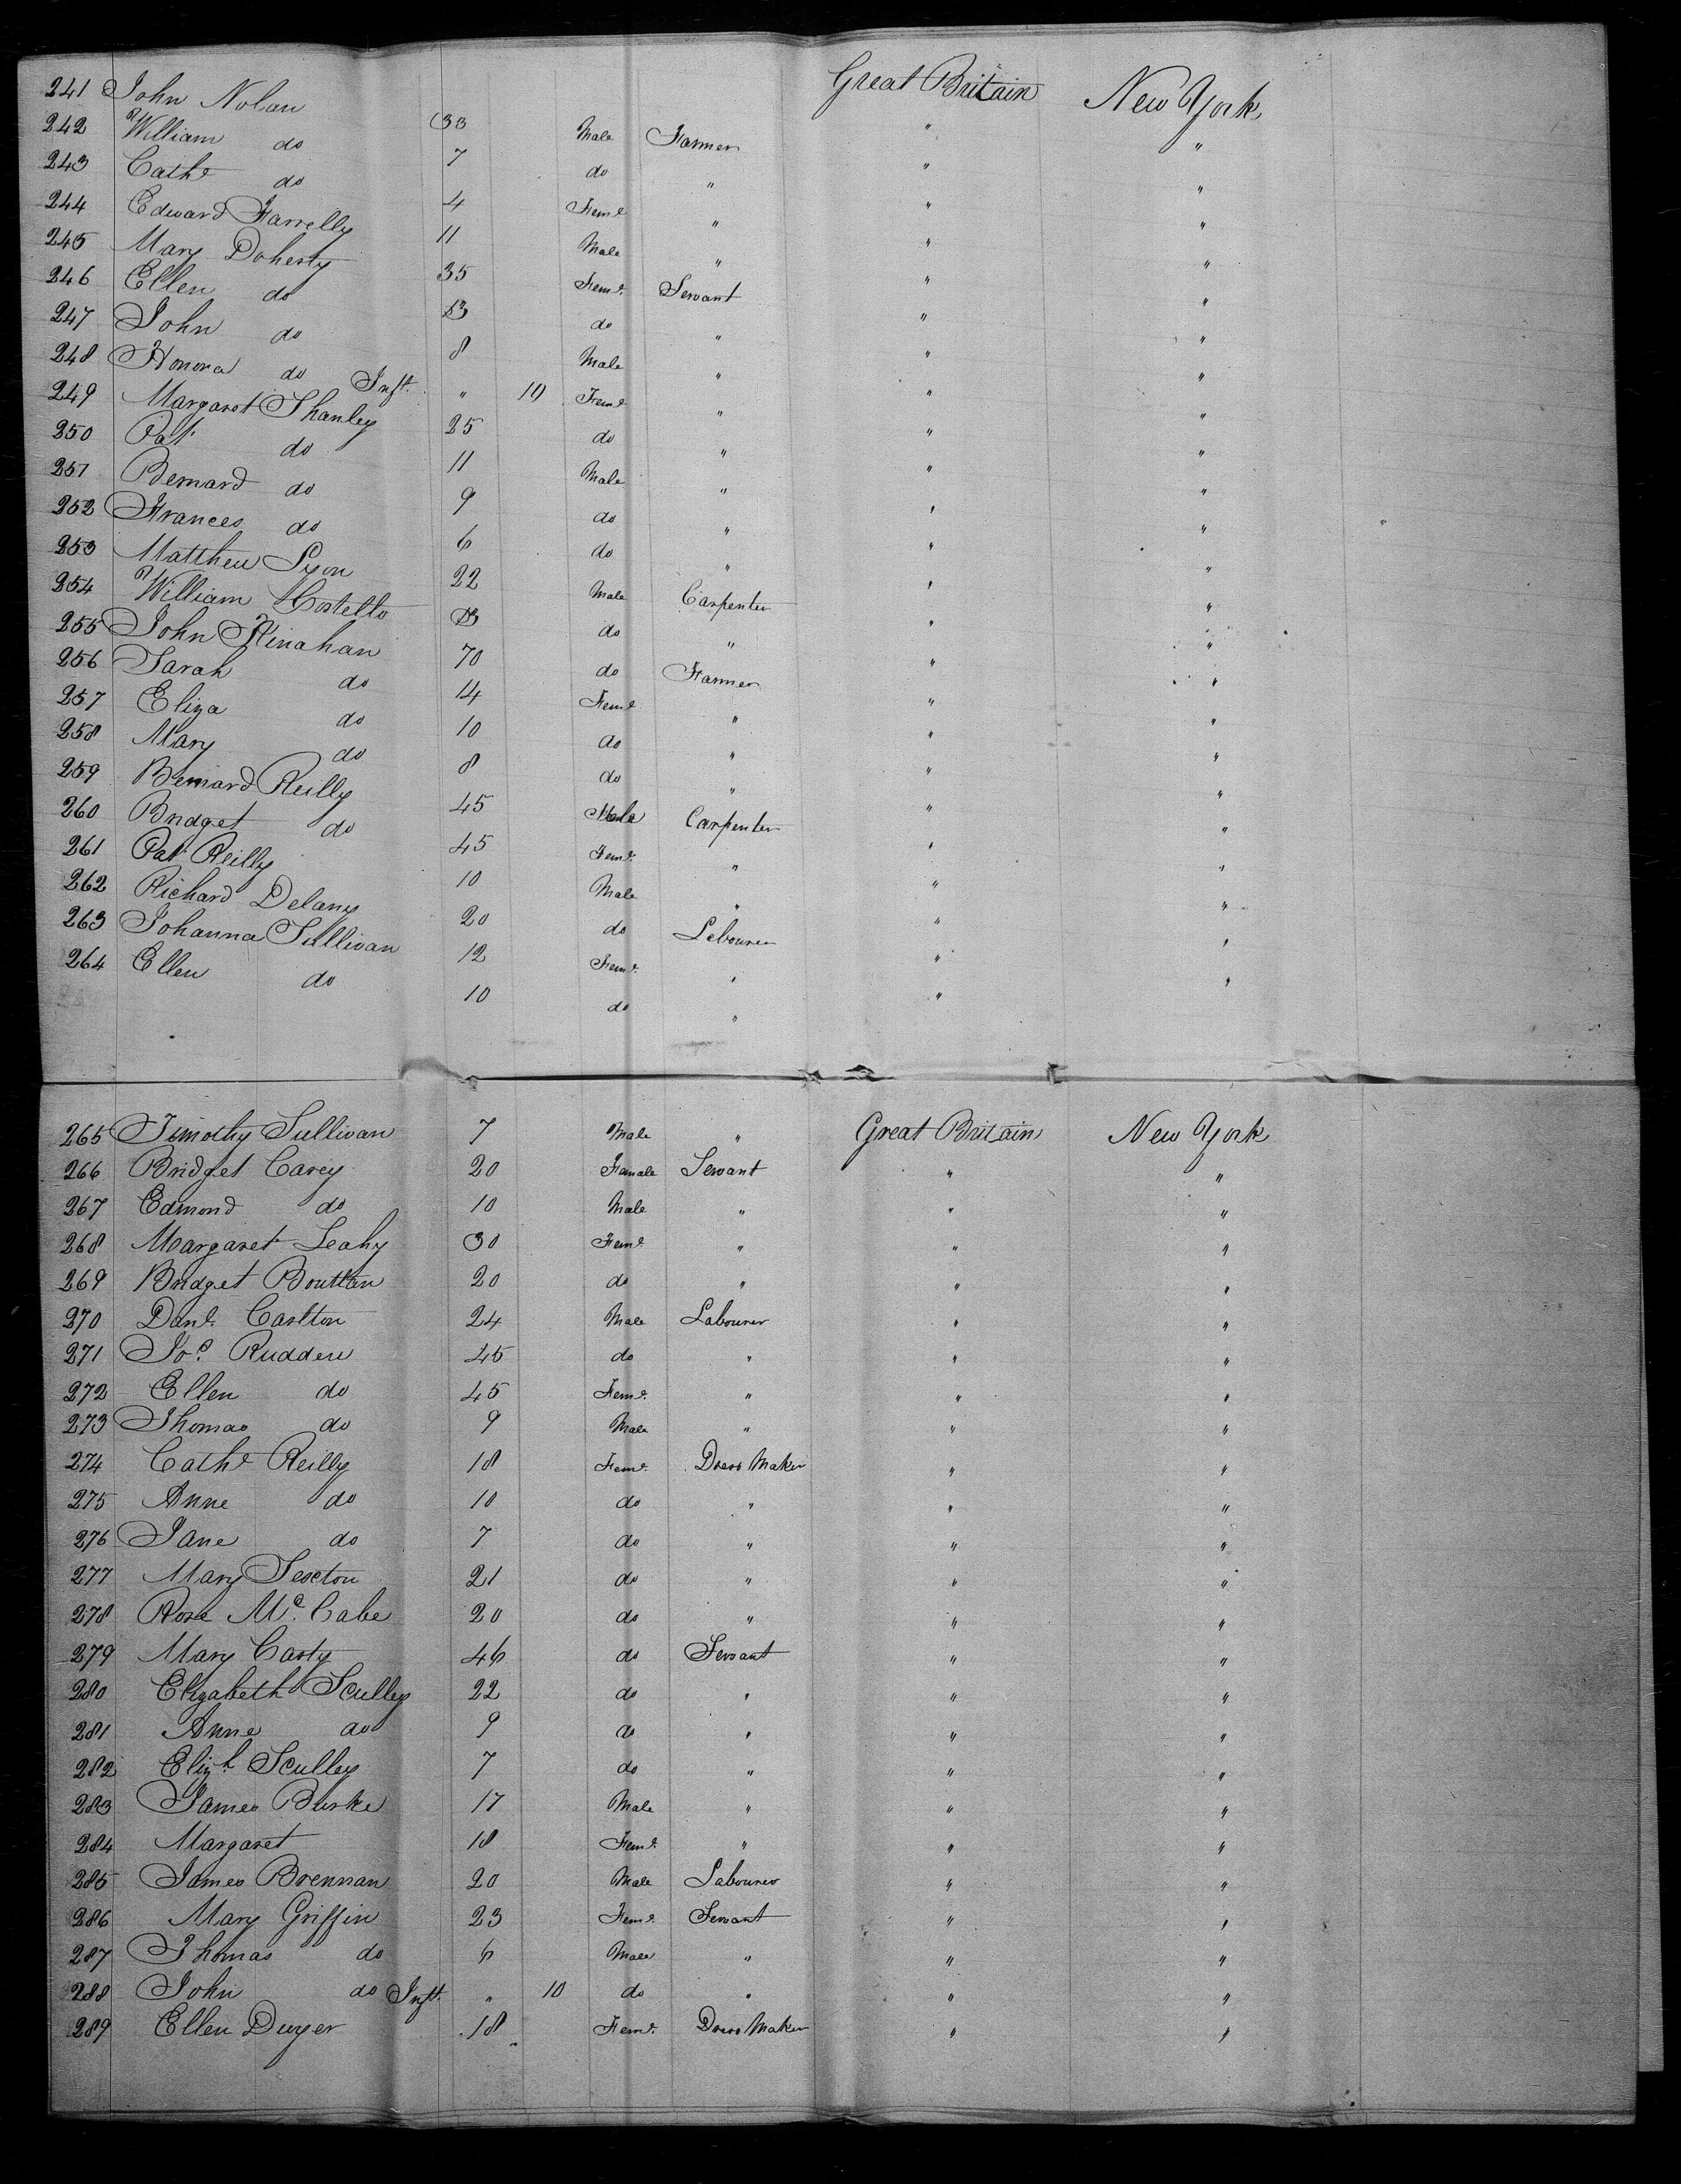 241 John Nolan 33 Male Farmer Great Britain New York
242 William do 7 do " " "
243 Cathe do 4 Feme " " "
244 Edward Farrelly 11 Male " " "
245 Mary Doherty 35 Feme Servant " "
246 Ellen do 13 do " " "
247 John do 8 Male " " "
248 Honora do Inft. " 10 Feme " " "
249 Margaret Shanley 25 do " " "
250 Pat. do 11 Male " " "
251 Bernard do 9 do " " "
252 Frances do 6 do " " "
253 Matthew Lyon 22 Male Carpenter " "
254 William Costello 13 do " " "
255 John Kinahan 70 do Farmer " "
256 Sarah do 14 Feme " " "
257 Eliza do 10 do " " "
258 Mary do 8 do " " "
259 Bernard Reilly 45 Male Carpenter " "
260 Bridget do 45 Feme " " "
261 Pat. Reilly 10 Male " " "
262 Richard Delany 20 do Labourer " "
263 Johanna Sullivan 12 Feme " " "
264 Ellen do 10 do " " "
265 Timothy Sullivan 7 Male " Great Britain New York
266 Bridget Carey 20 Female Servant " "
267 Edmond do 10 Male " " "
268 Margaret Leahy 30 Feme " " "
269 Bridget 20 do " " "
270 Danl. Carlton 24 Male Labourer " "
271 Jos. Rudden 45 do " " "
272 Ellen do 45 Feme " " "
273 Thomas do 9 Male " " "
274 Cathe Reilly 18 Feme Dress Maker " "
275 Anne do 10 do " " "
276 Jane do 7 do " " "
277 Mary Sexton 21 do " " "
278 Rose Mc.Cabe 20 do " " "
279 Mary Carty 46 do Servant " "
280 Elizabeth Sculley 22 do " " "
281 Anne do 9 do " " "
282 Elizh. Sculley 7 do " " "
283 James Burke 17 Male " " "
284 Margaret 18 Feme " " "
285 James Brennan 20 Male Labourer " "
286 Mary Griffin 23 Feme Servant " "
287 Thomas do 6 Male " " "
288 John do Inft. " 10 do " " "
289 Ellen Dwyer 18 Feme Dress Maker " "